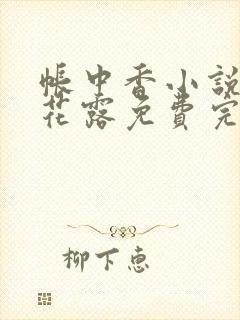 帳中香小說
花露免費完
柳下惠